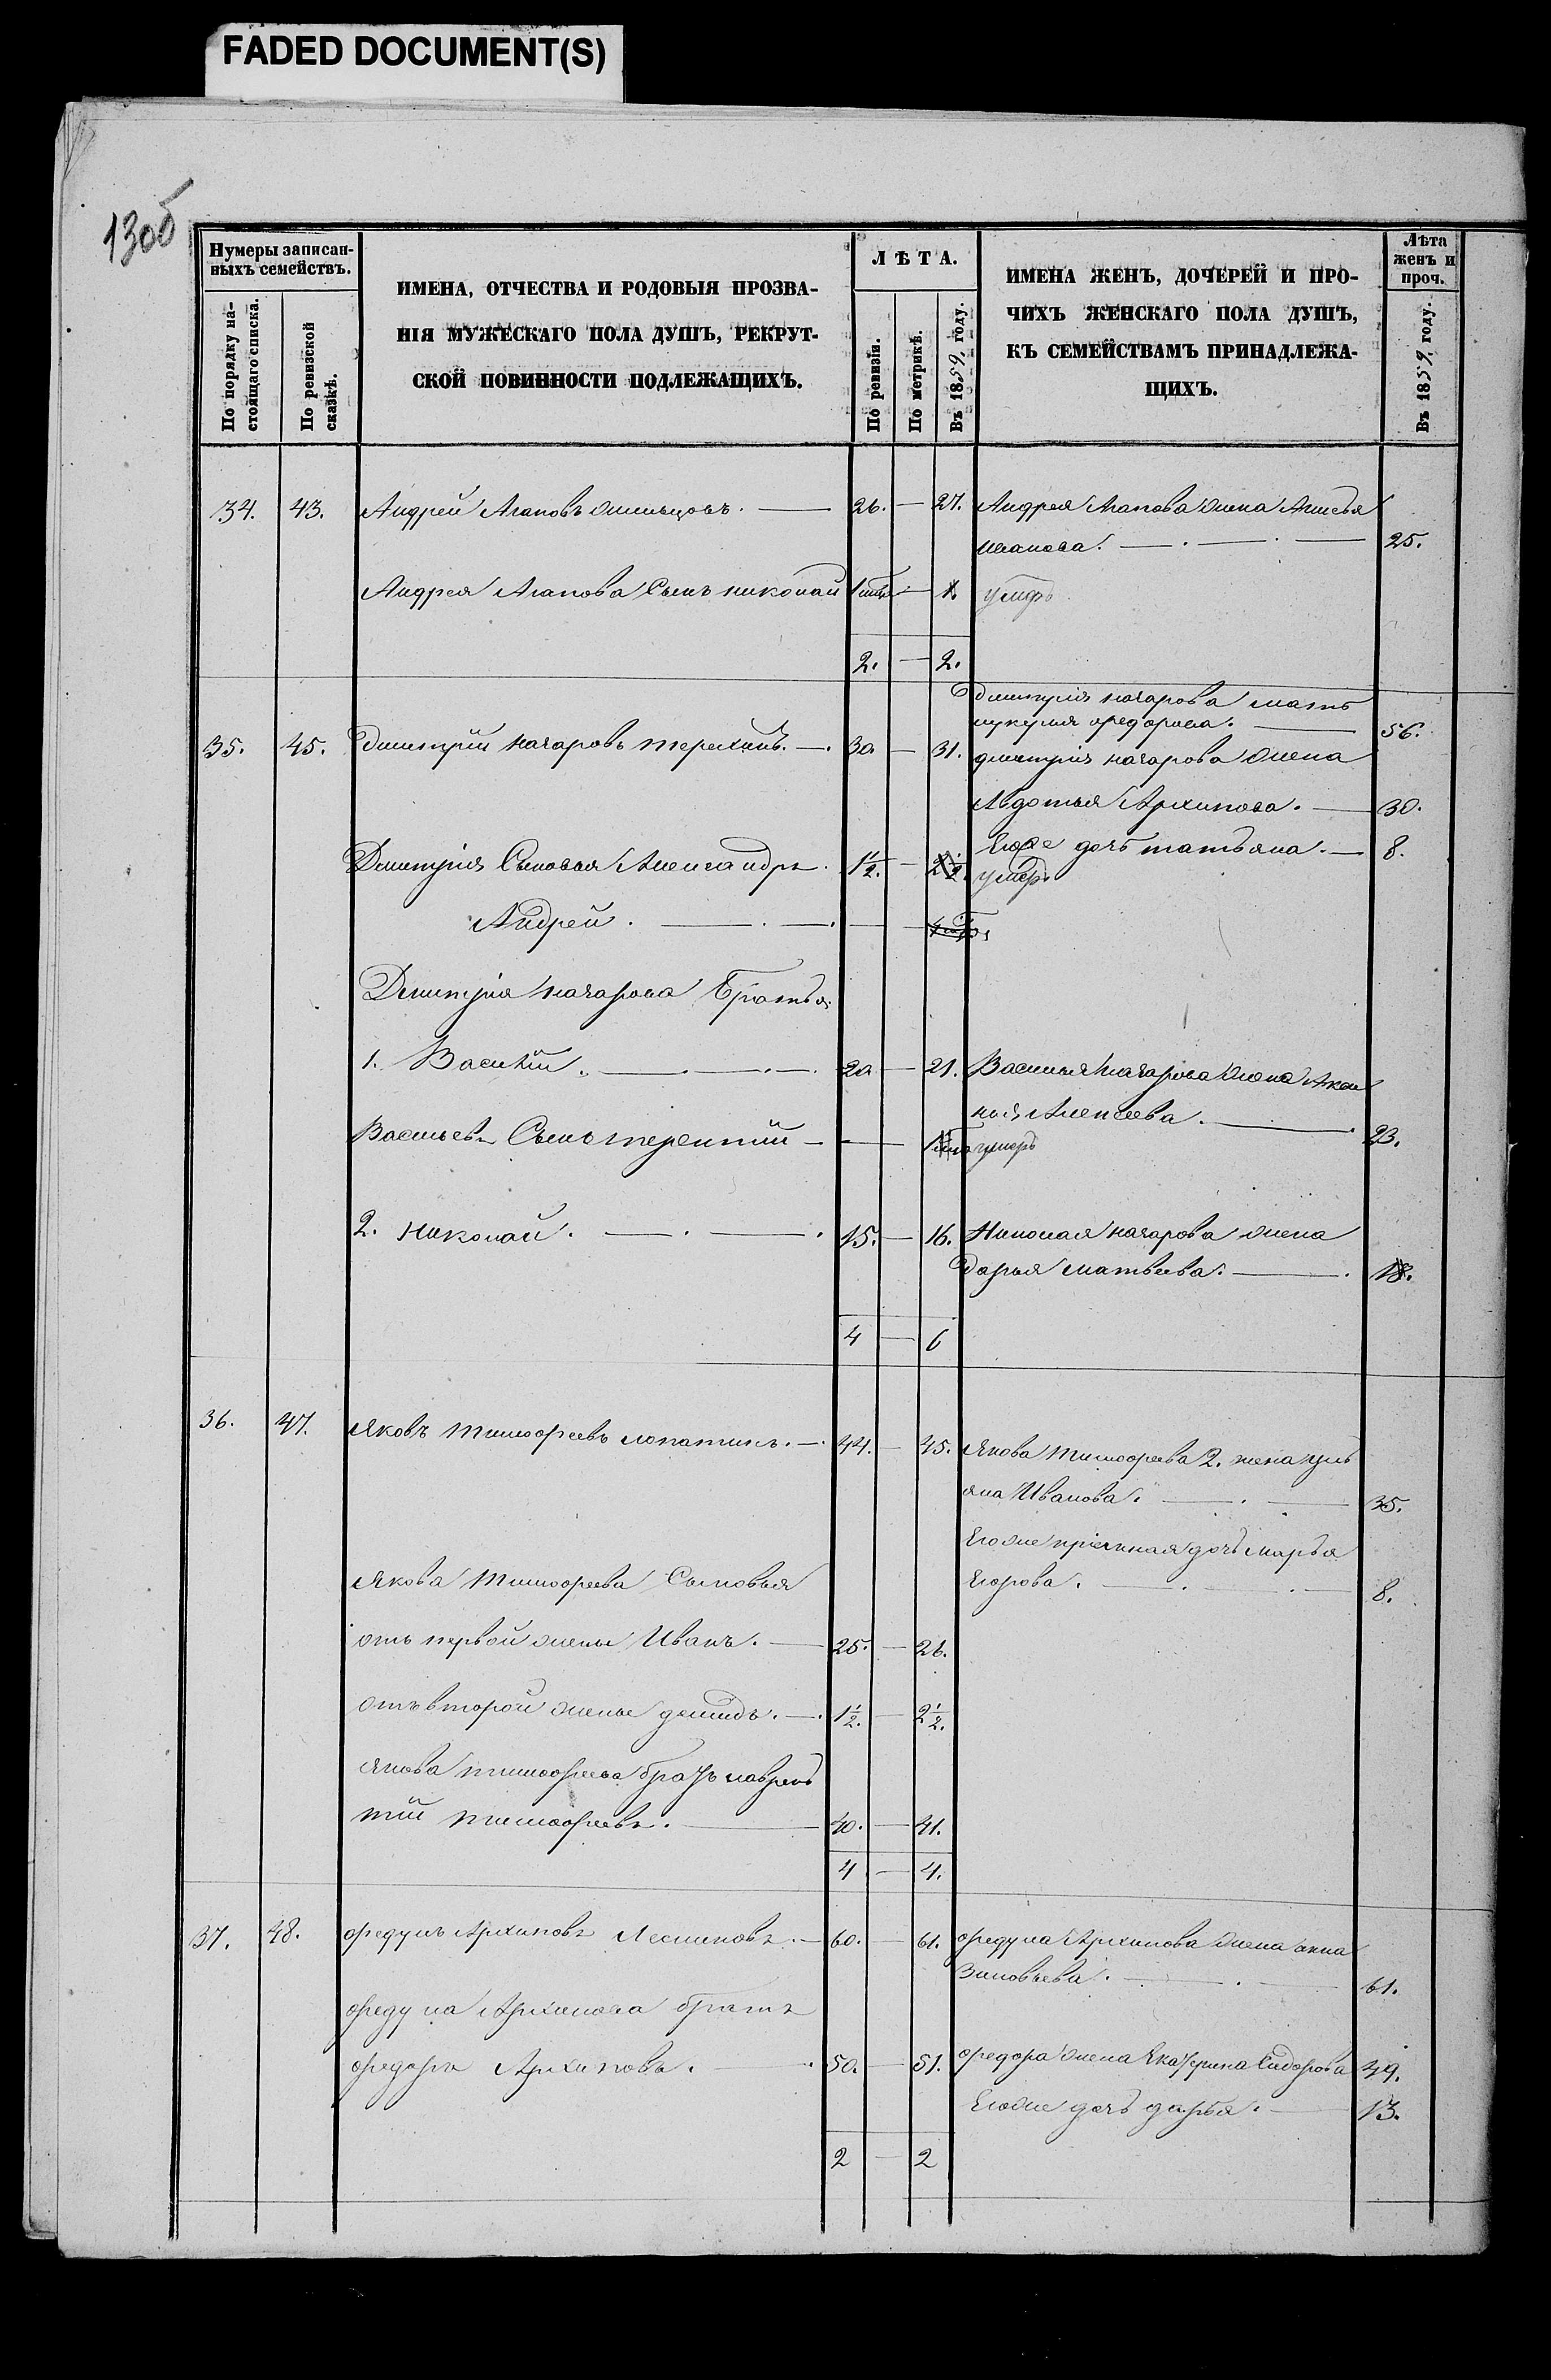 FADED DOCUMENT(S)
130об
Нумеры записан-
ныхъ семействъ.
По порядку на-
стоящаго списка.
По ревизской
сказкѣ.
ИМЕНА, ОТЧЕСТВА И РОДОВЫЯ ПРОЗВА-
НІЯ МУЖЕСКАГО ПОЛА ДУШЪ, РЕКРУТ-
СКОЙ ПОВИННОСТИ ПОДЛЕЖАЩИХЪ.
ЛѢТА.
По ревизіи.
По метрикѣ.
Въ 1859, году.
ИМЕНА ЖЕНЪ, ДОЧЕРЕЙ И ПРО-
ЧИХЪ ЖЕНСКАГО ПОЛА ДУШЪ,
КЪ СЕМЕЙСТВАМЪ ПРИНАДЛЕЖА-
ЩИХЪ.
Лѣта
женъ и
проч.
Въ 1859, году.
34. 43. Андрей Агаповъ 26. — 27. Андрея Агапова жена
Иванова. 25.
Андрея Агапова Сынъ николай 1 — 1. умеръ
2. — 2.
дмитрія назарова мать
лукерья ѳедорова. 56.
35. 45. дмитрій назаровъ терехинъ. 30. — 31. дмитрія назарова жена
Авдотья Архипова. 30.
Его же дочь татьяна. 8.
Дмитрія Сыновья Александръ 1½. — 2½. умеръ
Андрей.
Дмитрія назарова Братья
1. Василій. 20 — 21. Василья назарова жена Аксин
ья Алексеева. 23.
Васильевъ Сынъ терентий — умеръ
2. николай. 15. — 16. Николая назарова жена
дарья матвеева. 18.
4 — 6
36. 47. Яковъ тимоѳеевъ лопатинъ. 44. — 45. Якова тимоѳеева 2. жена уль
яна Иванова. 35.
Его же пріемная дочь марья
Егорова. 8.
Якова тимоѳеева Сыновья
отъ первой жены Иванъ. 25. — 26.
отъ второй жены демидъ. 1½. — 2½.
Якова тимоѳеева братъ лаврень
тій тимоѳеевъ. 40. — 41.
4 — 4.
37. 48. ѳедулъ Архиповъ 60. — 61. ѳедула Архипова жена анна
Зиновьева. 61.
ѳедула Архипова братъ
ѳедоръ Архиповъ. 50. — 51. ѳедора жена Екатерина Сидорова 49.
Его же дочь дарья. 13.
2 — 2